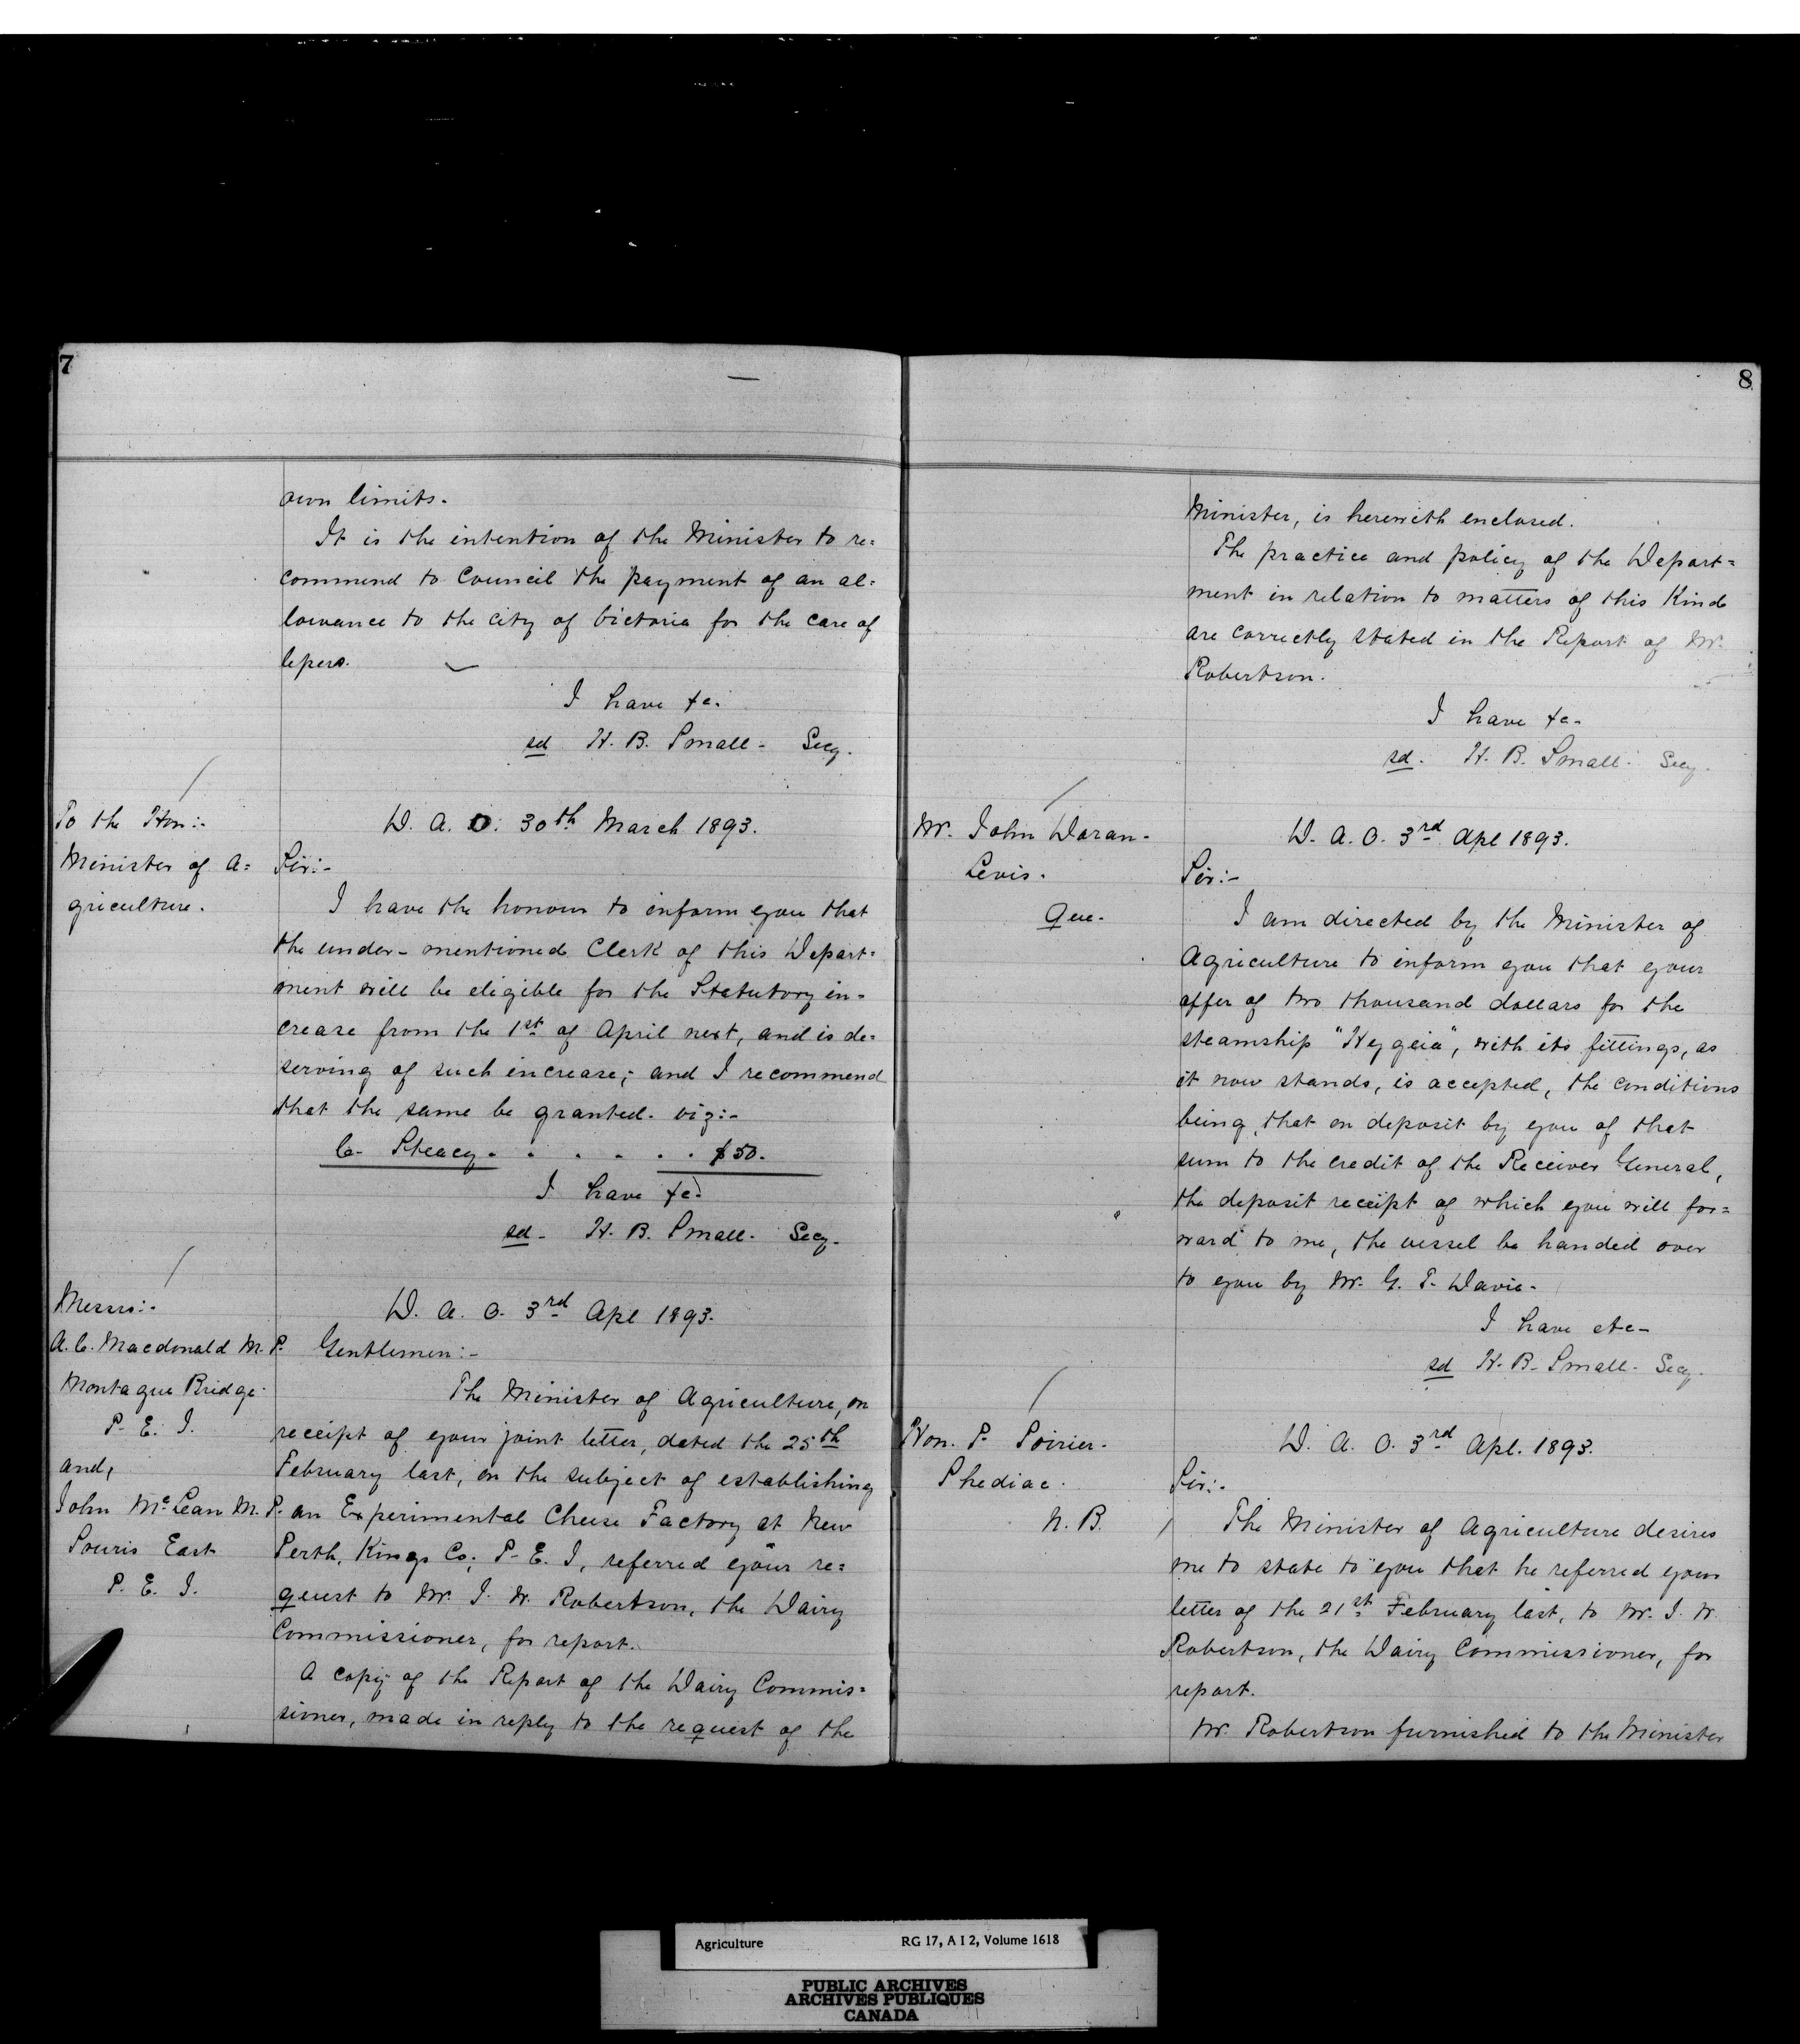 7
own limits.
It is the intention of the Minister to re=
commend to Council the payment of an al=
lowance to the city of Victoria for the care of
lepers.
I have &c.
sd H. B. Small - Secy.
To the Hon:-
Minister of A=
griculture.
D. A. O. 30th March 1893.
Sir:-
I have the honour to inform you that
the under-mentioned Clerk of this Depart=
ment will be eligible for the Statutory in=
crease from the 1st of April next, and is de=
serving of such increase; and I recommend
that the same be granted. viz:-
C. Steacy . . . . . . $50.
I have &c.
sd - H. B. Small. Secy.
Messrs:-
A. C. Macdonald M. P.
Montague Bridge.
P. E. I.
and,
John McLean M. P.
Souris East
P. E. I.
D. A. O. 3rd Apl 1893.
Gentlemen:-
The Minister of Agriculture, on
receipt of your joint letter, dated the 25th
February last, on the subject of establishing
an Experimental Cheese Factory at New
Perth, Kings Co; P. E. I, referred your re=
quest to Mr. J. W. Robertson, the Dairy
Commissioner, for report.
A copy of the Report of the Dairy Commis=
sioner, made in reply to the request of the
8
Minister, is herewith enclosed.
The practice and policy of the Depart=
ment in relation to matters of this Kind
are correctly stated in the Report of Mr.
Robertson.
I have &c-
sd. H. B. Small. Secy.
Mr. John Doran-
Levis.
Que.
D. A. O. 3rd Apl 1893.
Sir:-
I am directed by the Minister of
Agriculture to inform you that your
offer of two thousand dollars for the
steamship "Hygeia", with its fittings, as
it now stands, is accepted, the conditions
being, that on deposit by you of that
sum to the credit of the Receiver General,
the deposit receipt of which you will for=
ward to me, the vessel be handed over
to you by Mr. G. T. Davie-
I have etc-
sd H. B. Small - Secy.
Hon. P. Poirier.
Shediac.
N. B.
D. A. O. 3rd Apl. 1893.
Sir:-
The Minister of Agriculture desires
me to state to you that he referred your
letter of the 21st February last, to Mr. J. W.
Robertson, the Dairy Commissioner, for
report.
Mr. Robertson furnished to the Minister
Agriculture RG 17, A I 2, Volume 1618
PUBLIC ARCHIVES
ARCHIVES PUBLIQUES
CANADA